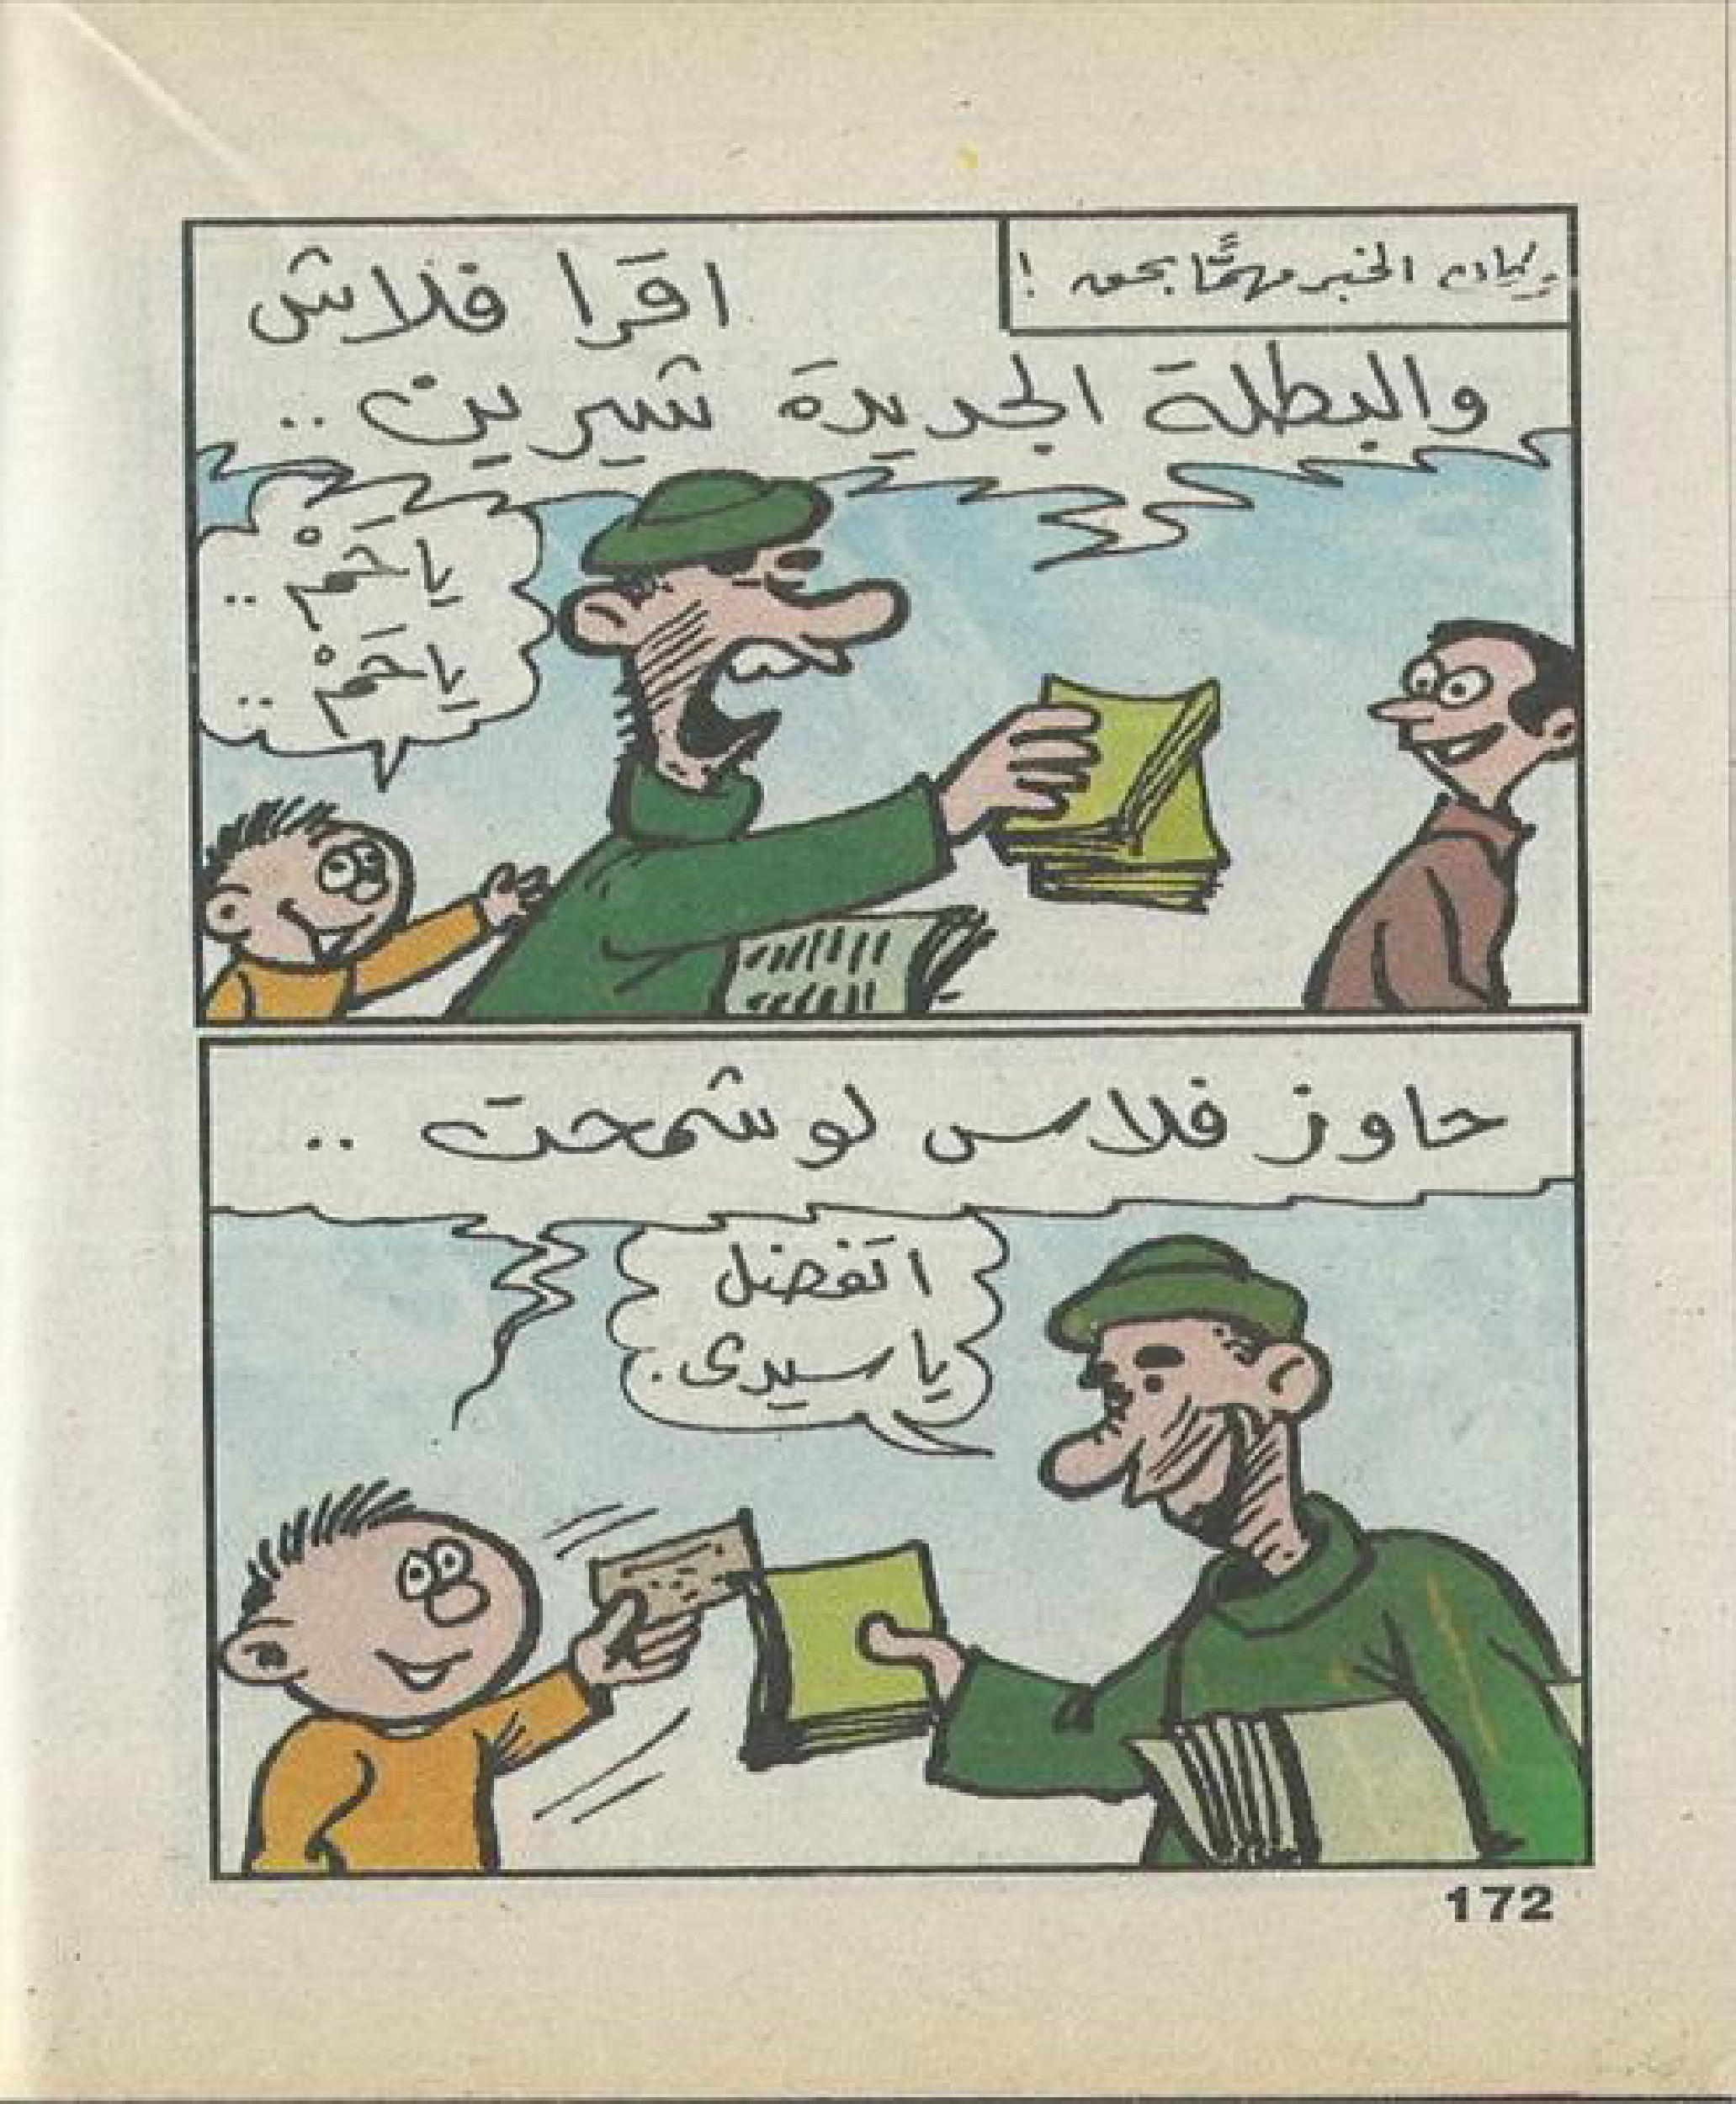 وكان الخبر مهمًّا بحق !
اقرا فلاش
والبطلة الجديدة شيرين ..
يا حَمْ ..
يا حَمْ ..
حاوز فلاس لو شمحت ..
اتفضل
يا سيدى .
172